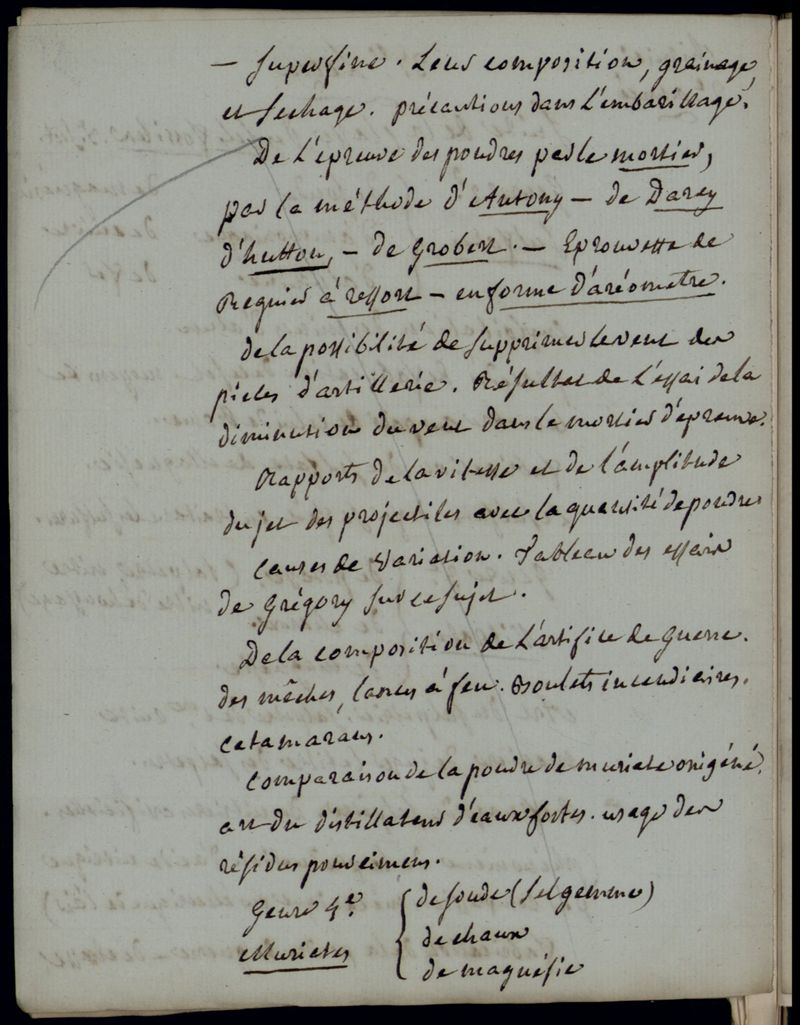 — Superfine. Leur composition, grainage,
et sechage. précautions dans L'embarillage.
De L'épreuve des poudres par le mortier,
par la méthode d'Antony — de Darcy
d'hutton, — de Grobert. — Eprouvette de
Regnier à ressort — en forme d'aréometre.
de la possibilité de supprimer le vent des
pieces d'artillerie. Résultat de L'essai de la
diminution du vent dans le mortier d'épreuve.
Rapports de la vitesse et de l'amplitude
du jet des projectiles avec la quantité de poudre
causes de variation. Tableau des essais
de Grégory sur ce sujet.
De la composition de L'artifice de Guerre.
des mêches, lances à feu. Boulets incendiaires.
catamarans.
Comparaison de la poudre de muriate oxigéné.
art du distillateur d'eaux fortes. usage des
résidus
Genre 4e. { de soude (Sel gemme)
Muriates { de chaux
{ de magnésie